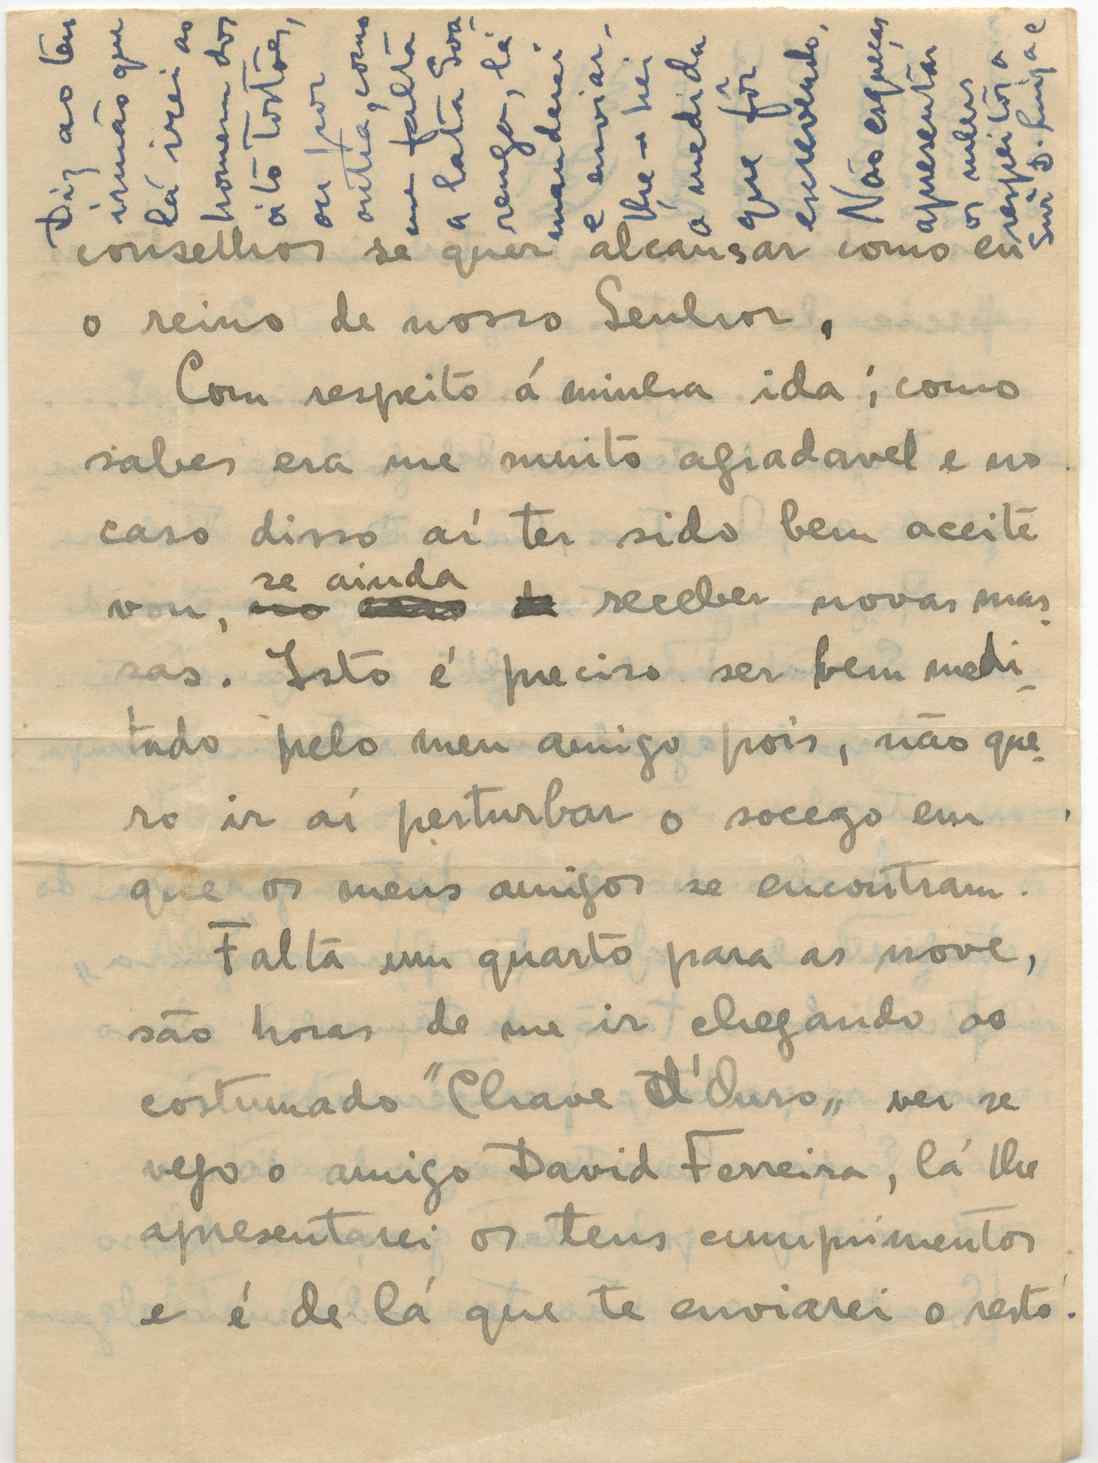 conselhos se quer alcansar como eu
o reino de nosso Senhor.
Com respeito á minha ida; como
sabes era me muito agradavel e no
caso disso aí ter sido bem aceite
vou, se ainda receber novas mas
sas. Isto é preciso ser bem medi
tado pelo meu amigo pois, não que
ro ir aí perturbar o socego em
que os meus amigos se encontram.
Falta um quarto para as nove,
são horas de me ir chegando ao
costumado "Chave d'Ouro„ ver se
vejo o amigo David Ferreira, lá lhe
apresentarei os teus cumprimentos
e é de lá que te enviarei o resto.
Diz ao teu
irmão que
lá irei ao
homem dos
oito tostões,
ou por
outra, como
me falta
a lata
lá
mandarei
e enviar-
lhe-hei
a medida
que fôr
escrevendo.
Não esqueças
apresentar
os meus
respeitos a